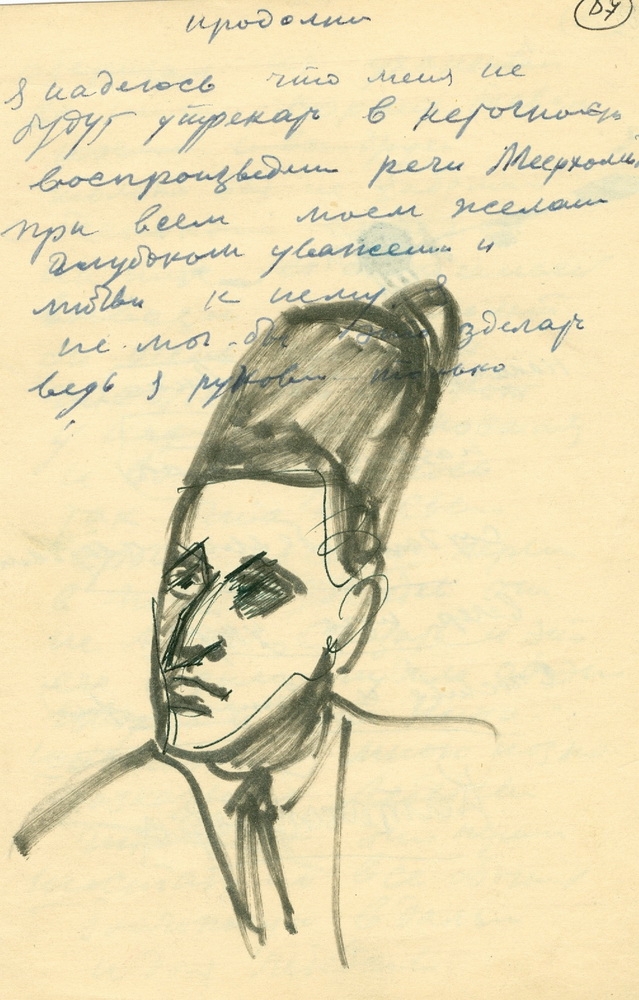 продолни
D7
я надеюсь что меня не
будут утрекарь в неточность
воспроизведии речи Меерхоль
при всем моем желаши
глубоком уважении и
любви к нему я
не мог бы зделарь
ведь я только